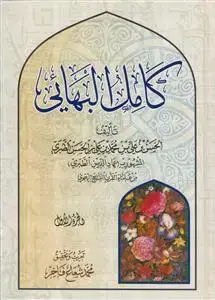 كامل البهائي
تأليف
الحسن بن علي بن محمد بن علي بن الحسن الطبري
المشهور بـ عماد الدين الطبري
من علماء القرن السابع الهجري
الجزء الأول
تعريب وتحقيق
محمد شعاع فاخر